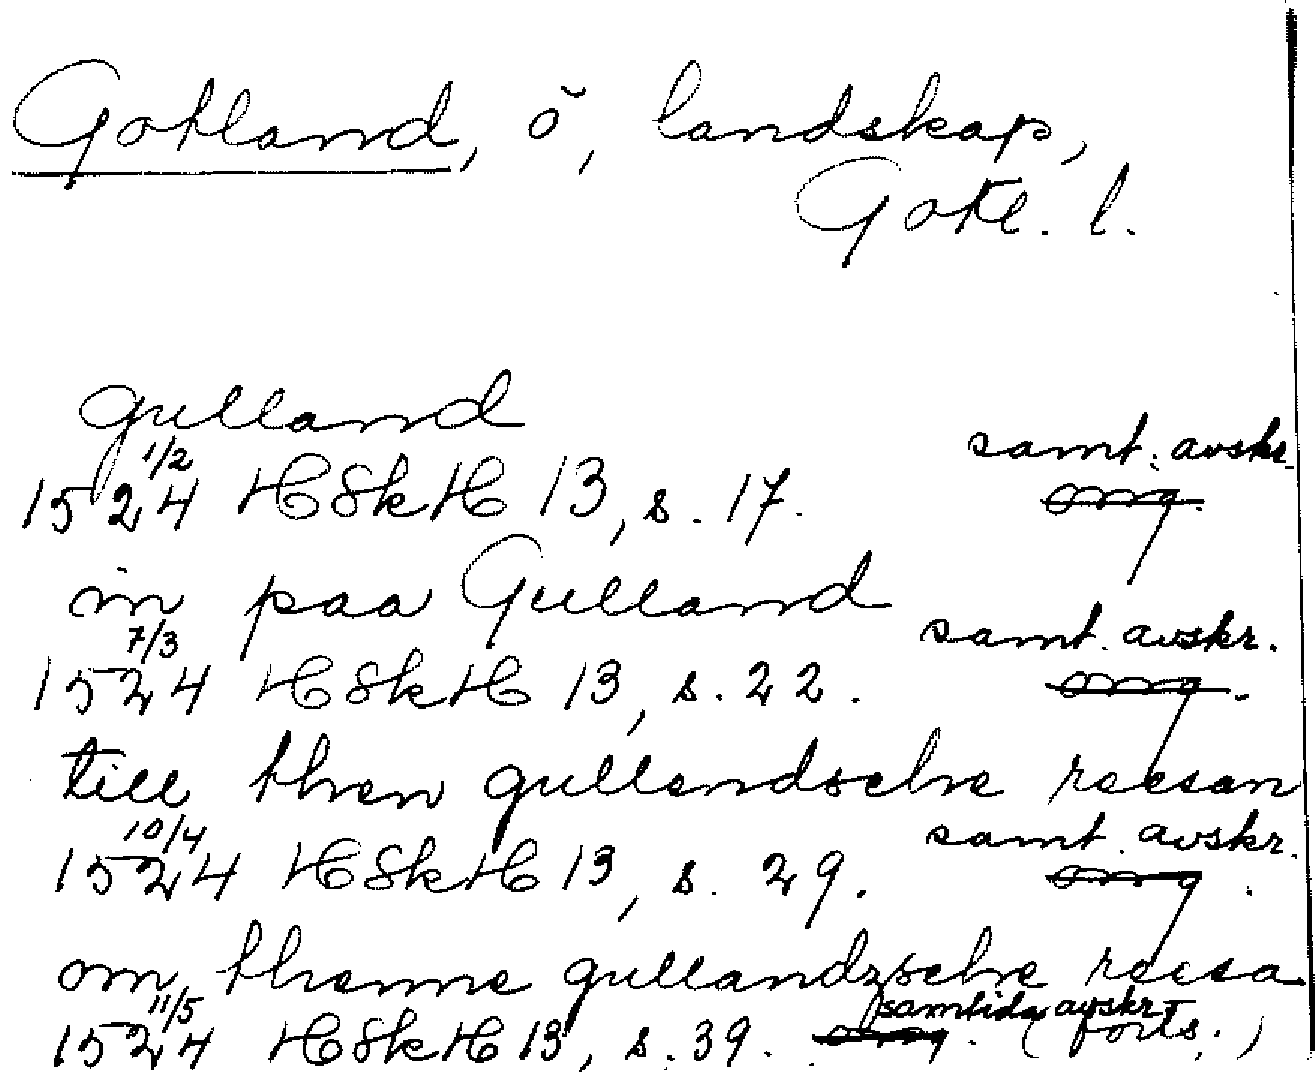 Gotland, ö, landskap,
Gotl. l.
gulland
1524 1/2 HSkH 13, s. 17. samt. avskr.
in paa Gulland
1524 7/3 HSkH 13, s. 22. samt. avskr.
till then gullendsche reesan
1524 10/4 HSkH 13, s. 29. samt. avskr.
om thenne gullandzsche reesa
1524 11/5 HSkH 13, s. 39. samtida avskr. (forts.)